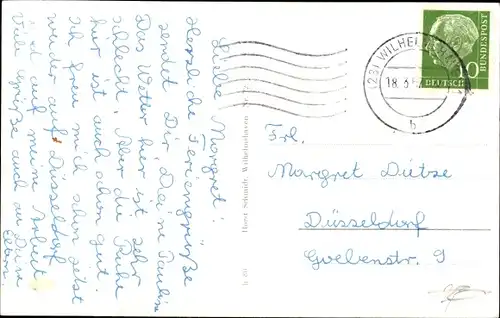 Liebe Margret!
Herzliche Feriengrüße
sendet Dir, Deine Pauline
Das Wetter hier ist sehr
schlecht. Aber die Ruhe
hier ist auch schon gut.
Ich freu mich schon jetzt
wieder auf Düsseldorf
und auf meine Arbeit.
Viele Grüße auch an Deine
Eltern.
Horst Schmidt, Wilhelmshaven
(23) WILHELMSH
18.
b
10
DEUTSCHE
BUNDESPOST
Frl.
Margret Dütze
Düsseldorf
Goebenstr. 9